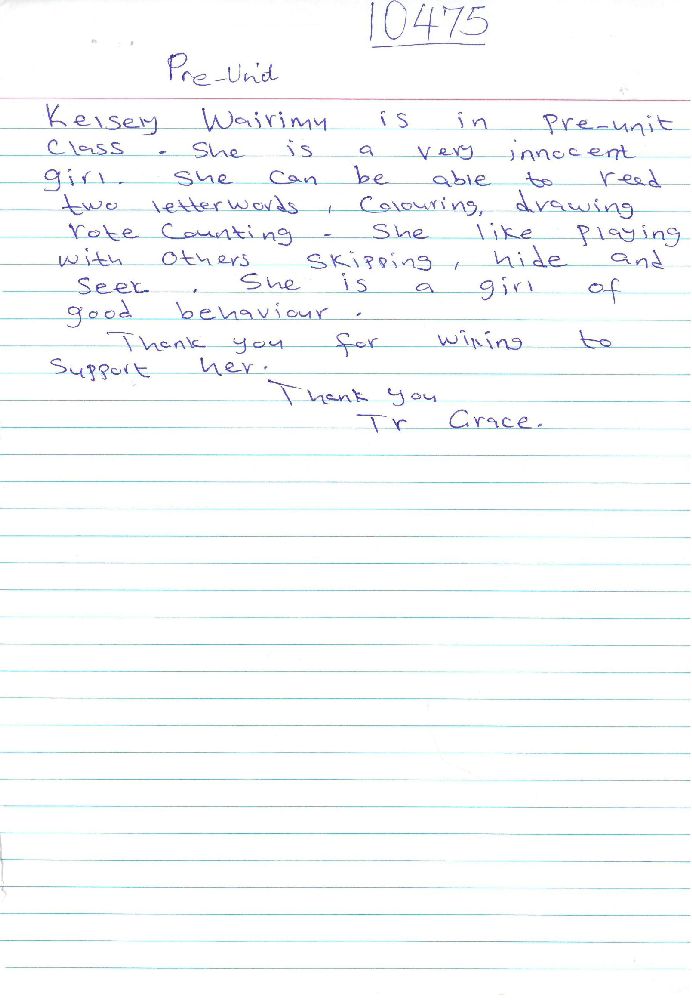 10475
Pre-Unit
Kelsey Wairimu is in Pre-unit
Class. She is a very innocent
girl. She can be able to read
two letterwords, Colouring, drawing
rote Counting. She like playing
with others skipping, hide and
Seek. She is a girl of
good behaviour.
Thank you for wiring to
Support her.
Thank you
Tr Grace.